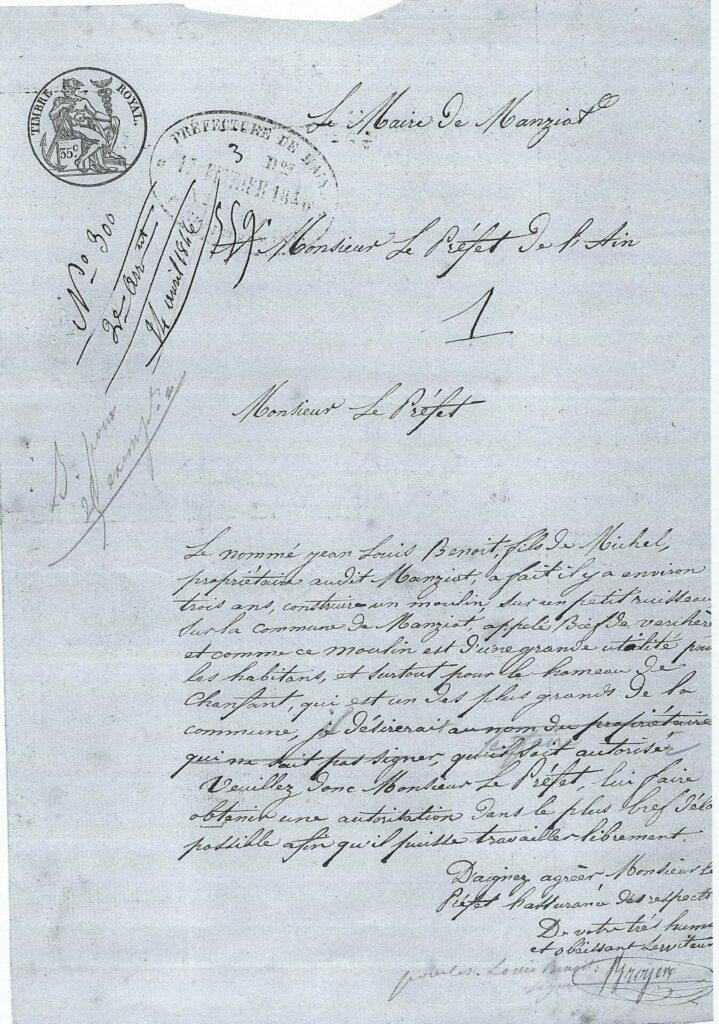 TIMBRE ROYAL.
35 c.
PRÉFECTURE DE L'AIN
3 Don
17 FÉVRIER 1846
Le Maire de Manziat
No. 300
2e Arr nt
24 avril 1846
559
Monsieur Le Préfet De l'Ain
1
Monsieur Le Préfet
B. pour
2 exempl.
Le nommé jean Louis Benoit, fils de Michel,
propriétaire audit Manziat, a fait il y a environ
trois ans, construire un moulin sur un petit ruisseau
sur la commune de Manziat, appelé Bief de
et comme ce moulin est d'une grande utilité pou
les habitans, et surtout pour le hameau de
Chanfant, qui est un des plus grands de la
commune, je désirerait au nom du propriétaire
qui ne sait pas signer, qu'il soit autorisé.
Veuillez donc Monsieur Le Préfet, lui faire
obtenir une autoritation dans le plus bref déla
possible afin qu'il puisse travailler librement.
Daignez agréer Monsieur Le
Préfet l'assurance des respects
De votre très humb
et obéissant serviteur
Louis Benoit
Broyer